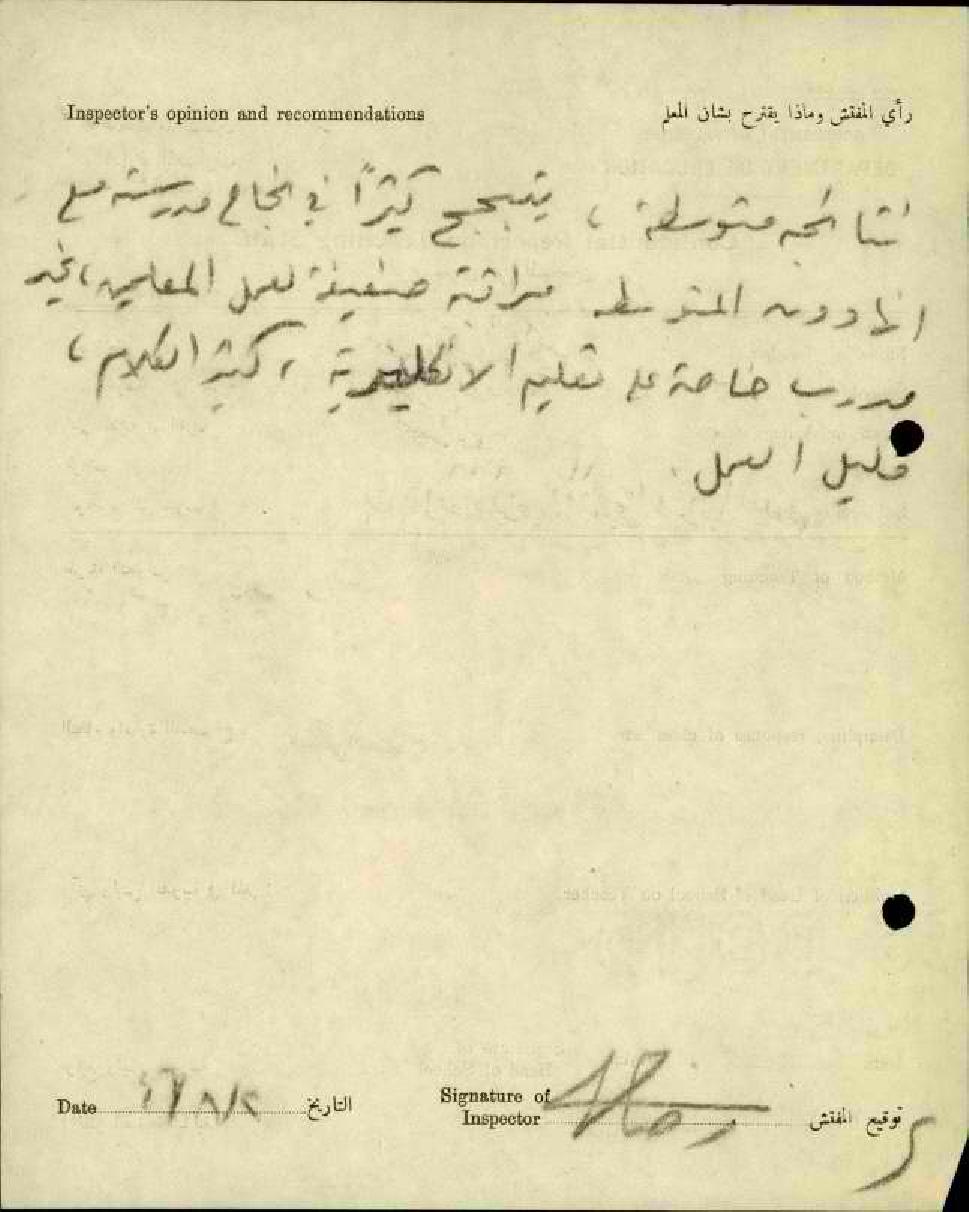 Inspector's opinion and recommendations
رأي المفتش وماذا يقترح بشان المعلم
نتائجه متوسطة ، يتبجح كثيرًا في نجاح مدرسته مع
انها دون المتوسط . مراقبته ضعيفة لعمل المعلمين ، غير
مدرب خاصة على تعليم الانكليزية ، كثير الكلام ،
قليل العمل .
Date
التاريخ
Signature of
Inspector
توقيع المفتش